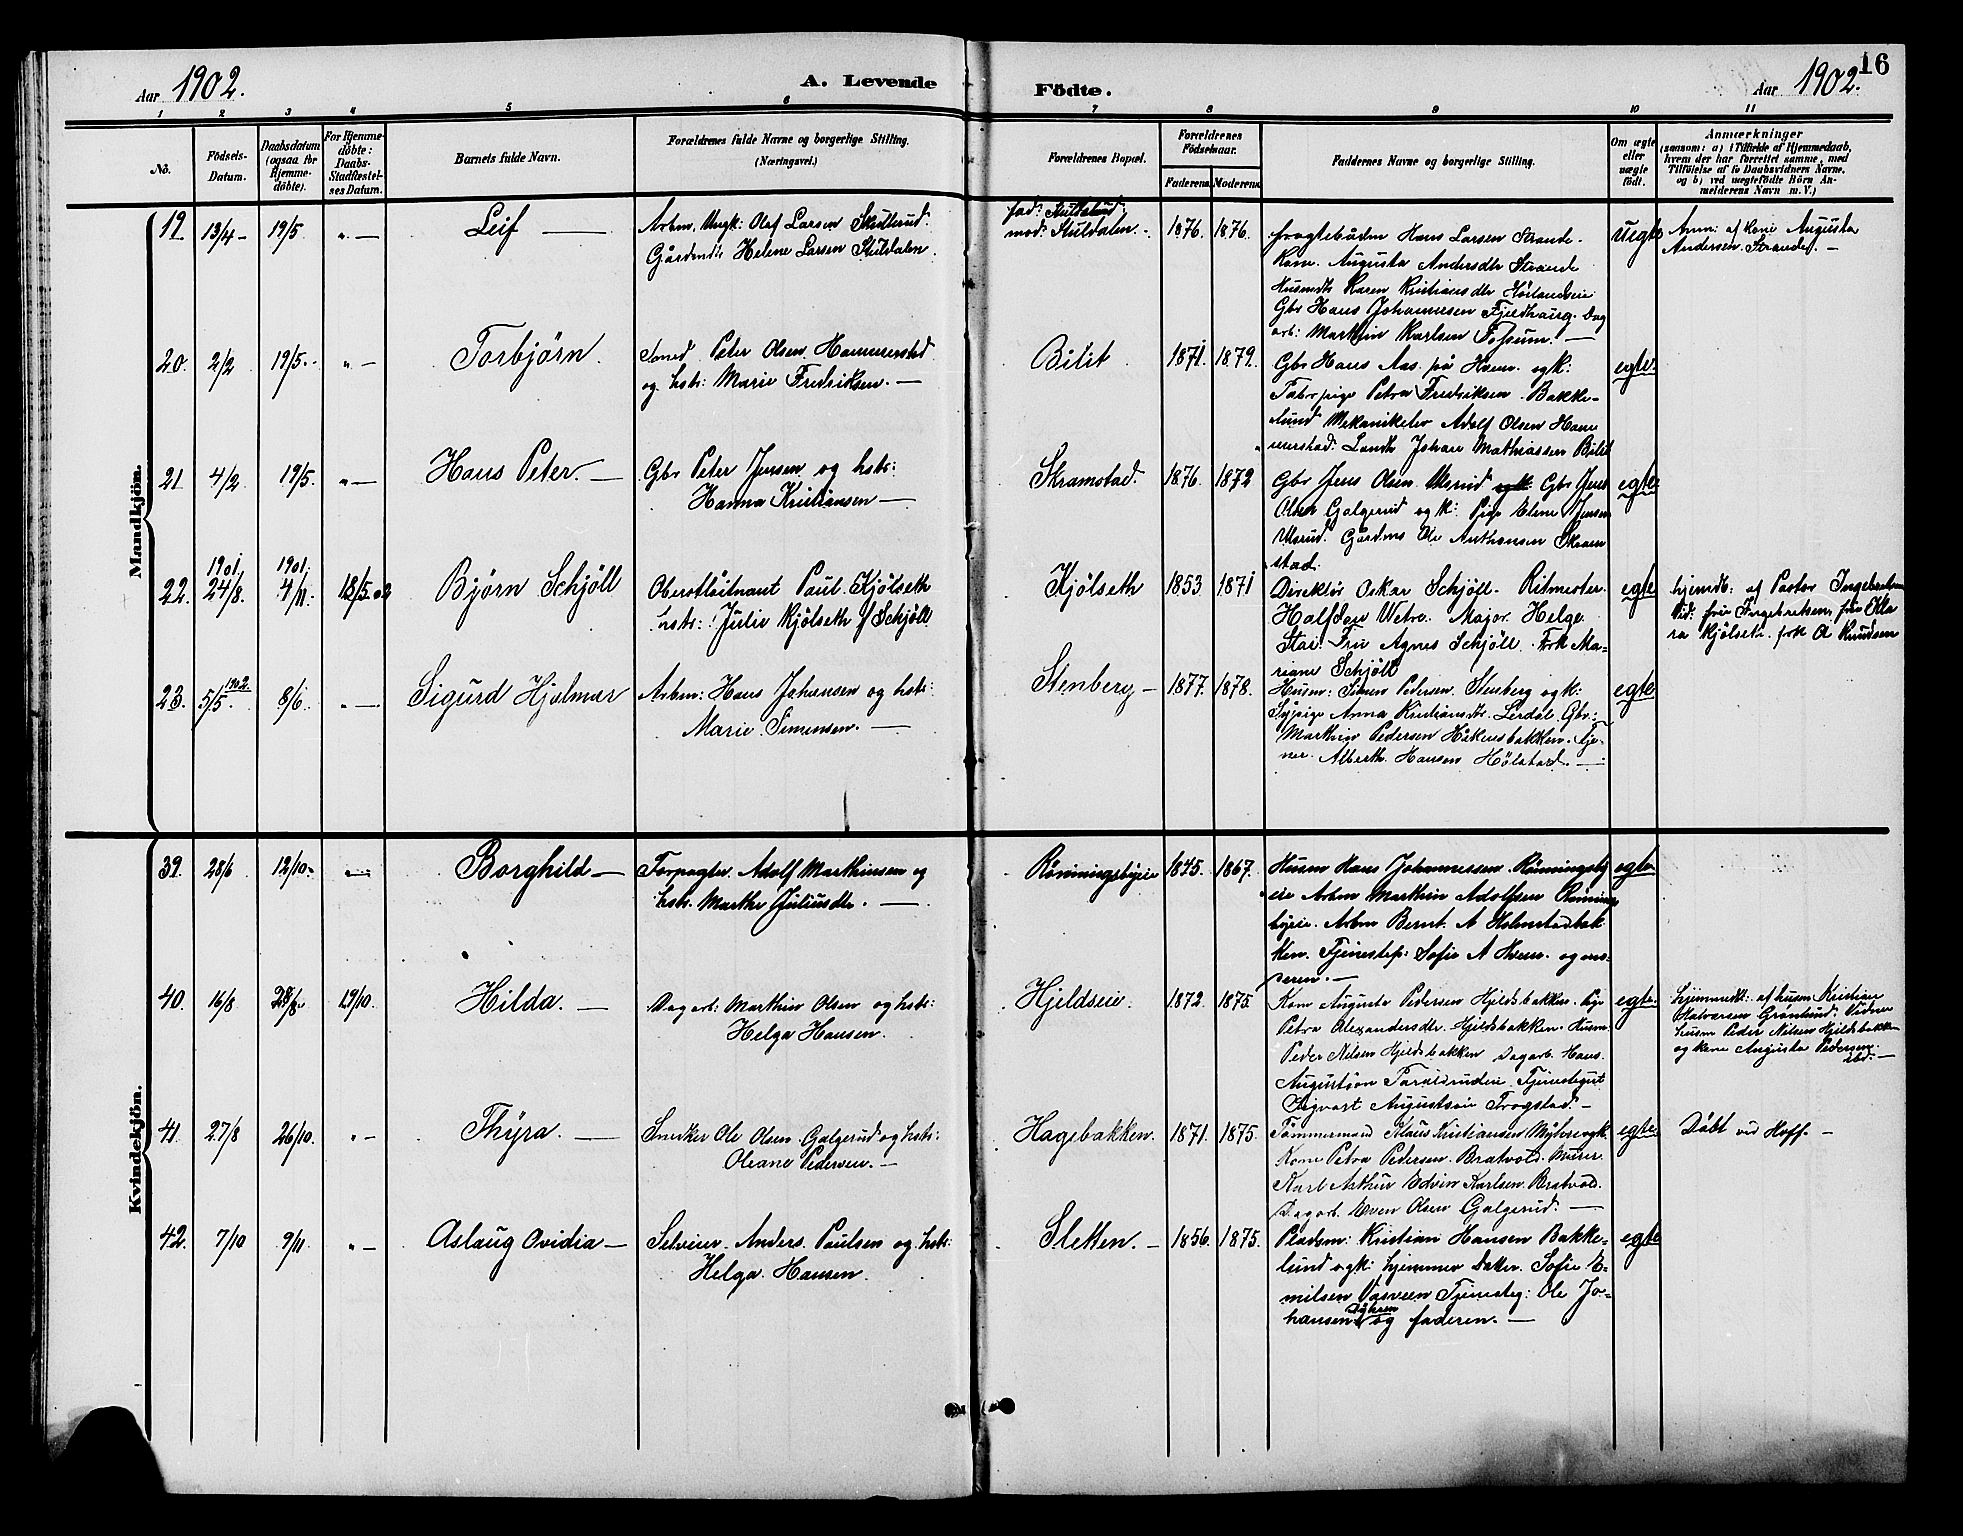 Aar 1902.
A. Levende
Födte.
Aar 1902.
16
1 2 3 4 5 6 7 8 9 10 11
No.
Födsels-
Datum.
Daabsdatum
(ogsaa for
Hjemme-
döbte).
For Hjemme-
döbte:
Daabs-
Stadfæstel-
ses Datum.
Barnets fulde Navn.
Forældrenes fulde Navne og borgerlige Stilling.
(Næringsvei.)
Forældrenes Bopæl.
Forældrenes
Födselsaar.
Faderens. Moderens.
Faddernes Navne og borgerlige Stilling.
Om ægte
eller
uægte
födt.
Anmærkninger
(saasom: a) i Tilfælde af Hjemmedaab,
hvem der har forrettet samme, med
Tilföielse af to Daabsvidners Navne,
og b) ved uægtefödte Börn An-
melderens Navn m. V.)
Mandkjön.
19 13/4 19/5 " — Leif —
Arbm. Ungk: Olaf Larsen Skullerud.
Gårdmdtr Helene Larsen Stuldalen.
fad:
mod: Stuldalen. 1876. 1876.
Hans Larsen Strande.
Kone. Augusta Andersdtr Strande
Husmdtr Karen Kristiansdtr
Gbr Hans Johannesen Fjeldhaug. Dag
arb: Marthin Karlsen Fossum. —
Uegte
Anm: af Kone Augusta
Andersen. Strande. —
20. 2/2 19/5. " — Torbjörn.
Smed Peter Olsen Hammerstad
og hstr: Marie Fredriksen. —
Bilit 1871. 1879.
Gbr Hans Aas på Hveem. ogk:
Petra Fredriksen. Bakke-
lund Mekaniker Adolf Olsen Ham
merstad. Landh Johan Mathiassen Bilit
egte.
21 4/2 19/5. " — Hans Peter. —
Gbr Peter Jensen og hstr:
Hanna Kristiansen —
Skramstad. 1876. 1872
Gbr Jens Olsen Ulsrud Gbr Jens
Olsen Galgerud ogk: Pige Elene Jensen
Ulsrud. Gårdms Ole Anthonsen Skram
stad.
egte
22. 1901. 24/8. 1901. 4/11. 18/5. 02 Björn Schjöll
Oberstlöitnant Paul Kjölseth
hstr: Julie Kjölseth f Schjöll
Kjölseth 1853 1871
Direktör Oskar Schjöll. Ritmester
Halfdan Wetre. Major. Helge
Fru Agnes Schjöll. Frk Ma-
riane Schjöll
egte
hjemdb: af Pastor Ingebretsen
Vid: fru Ingebretsen, frk Kla
ra Kjölseth. frk A Knudsen
23. 5/5. 1902. 8/6. " — Sigurd Hjalmar
Arbm: Hans Johansen og hstr:
Marie Simensen. —
Stenberg — 1877. 1878.
Husm: Simen Pedersen. Stenberg ogk:
Sypige Anna Kristiansdtr. Lerdal. Gbr:
Marthin Pedersen Håkensbakken. Tje-
ner. Alberth. Hansen Hölstad. —
egte
Kvindekjön.
39. 28/6 12/10. " — Borghild —
Forpagter. Adolf Marthinsen og
hstr. Marthe Juliusdtr. —
Rönningsbyeie 1845. 1867.
Husm Hans Johannessen. Rönningsby
eie Arbm Marthin Adolfsen Rönnings
byeie. Arbm Bernt. A Holmstadbak
ken. Tjenestep: Sofie A Hveem. og
egte.
40. 16/8 28/8. 19/10. Hilda. —
Dagarb: Marthin Olsen og hstr:
Helga Hansen.
Hjeldseie. 1872. 1875.
Kone Augusta Pedersen Hjeldsbakken. Pige
Petra Alexandersdtr. Hjeldsbakken. Husm
Peder Nilsen Hjeldsbakken Dagarb. Hans.
Augustson Tjenestegut
Sigvart Augustsen Trogstad. —
egte.
hjemmedöbt: af husm Kristian
Halvorsen Grönlund: Vidner
husm Peder Nilsen Hjeldsbakken
og kone Augusta Pedersen.
ibd. —
41. 27/8 26/10. " — Thyra. —
Snedker Ole Olsen. Galgerud og hstr:
Oleane Pedersen. —
Hagebakken. 1871. 1875.
Tömmermand Klaus Kristiansen Myhre ogk.
Kone Petra Pedersen. Bratvold. Murer
Karl Arthur Edvin Karlsen. Bratvold.
Dagarb. Even Olsen Galgerud. —
egte
Döbt ved Hoff. —
42. 7/10 9/11. " — Aslaug Ovidia —
Selveier. Anders. Paulsen og hstr:
Helga. Hansen.
Sletten. — 1856. 1875.
Pladsm: Kristian Hansen Bakke-
lund ogk: hjemmev Datter. Sofie E-
milsen Tjenesteg: Ole Jo-
hansen Dyhren og faderen. —
egte